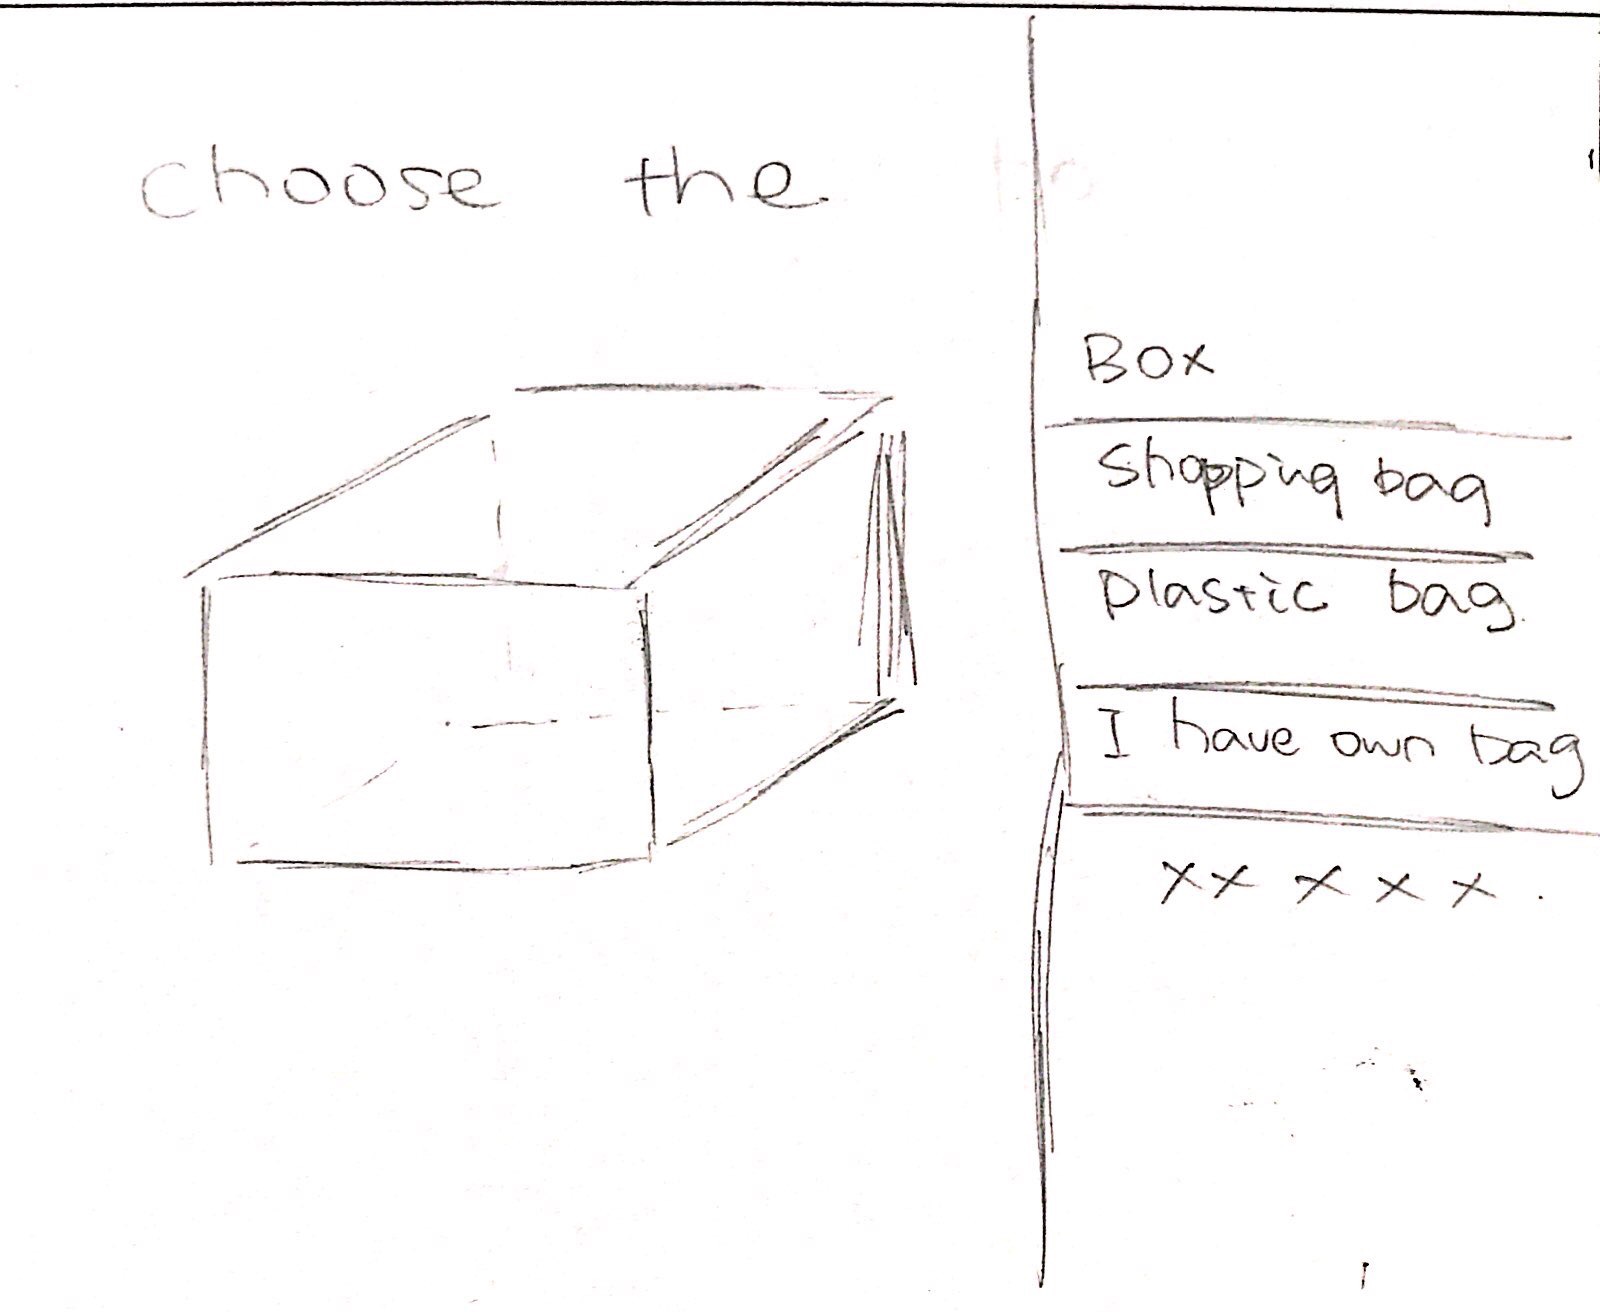 choose the
Box
Shopping bag
plastic bag
I have own bag
xx x x x .